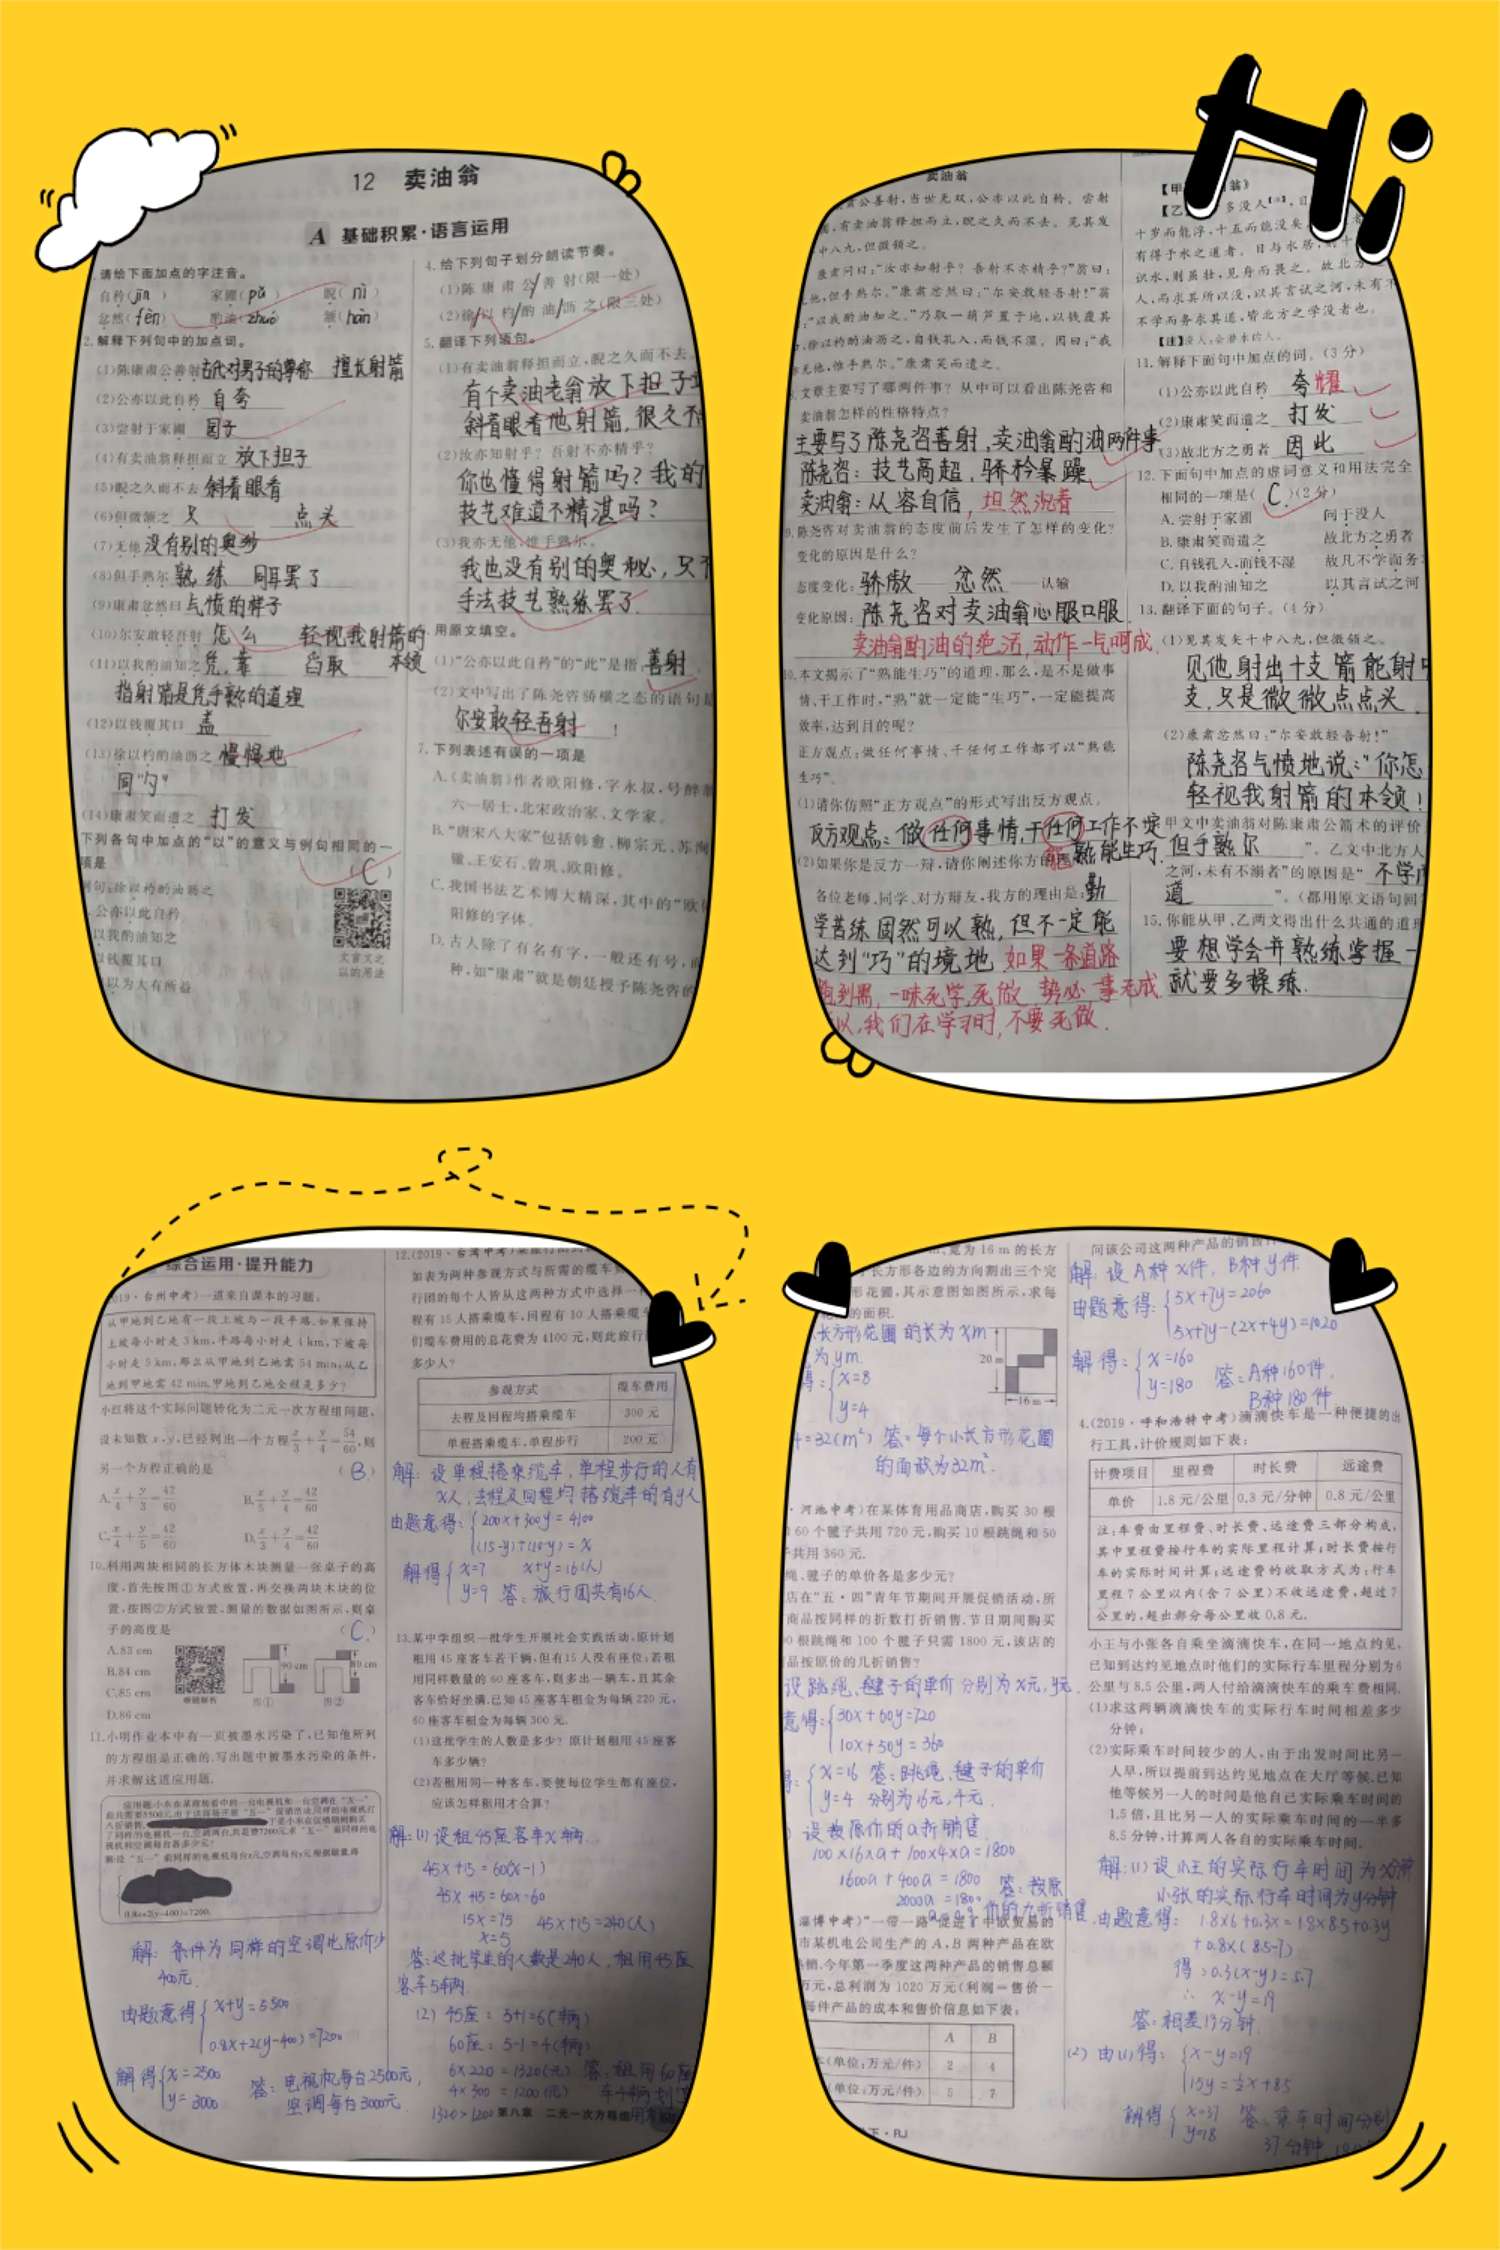 Hi
12 卖油翁
A 基础积累·语言运用
请给下面加点的字注音。
自矜(jīn) 家圃(pǔ) 睨(nì)
忿然(fèn) 酌油(zhuó) 颔(hàn)
2.解释下列句中的加点词。
(1)陈康肃公善射 古代对男子的尊称 擅长射箭
(2)公亦以此自矜 自夸
(3)尝射于家圃 园子
(4)有卖油翁释担而立 放下担子
(5)睨之久而不去 斜着眼看
(6)但微颔之 只 点头
(7)无他 没有别的奥妙
(8)但手熟尔 熟练 同耳罢了
(9)康肃忿然曰 气愤的样子
(10)尔安敢轻吾射 怎么 轻视我射箭的本领
(11)以我酌油知之 凭,靠 舀取
指射箭是凭手熟的道理
(12)以钱覆其口 盖
(13)徐以杓酌油沥之 慢慢地
同"勺"
(14)康肃笑而遣之 打发
下列各句中加点的“以”的意义与例句相同的一
项是 (C)
例句:徐以杓酌油沥之
公亦以此自矜
以我酌油知之
以钱覆其口
以为大有所益
文言文之
以的用法
4.给下列句子划分朗读节奏。
(1)陈 康 肃 公/善 射(限一处)
(2)徐/以 杓/酌 油/沥 之(限三处)
5.翻译下列语句。
(1)有卖油翁释担而立,睨之久而不去。
有个卖油老翁放下担子
斜着眼看他射箭,很久不
(2)汝亦知射乎?吾射不亦精乎?
你也懂得射箭吗?我的
技艺难道不精湛吗?
(3)我亦无他,惟手熟尔。
我也没有别的奥秘,只
手法技艺熟练罢了.
用原文填空。
(1)“公亦以此自矜”的“此”是指 善射
(2)文中写出了陈尧咨骄横之态的语句是
尔安敢轻吾射 !
7.下列表述有误的一项是
A.《卖油翁》作者欧阳修,字永叔,号醉翁
六一居士,北宋政治家、文学家。
B.“唐宋八大家”包括韩愈、柳宗元、苏洵
辙、王安石、曾巩、欧阳修。
C.我国书法艺术博大精深,其中的“欧
阳修的字体。
D.古人除了有名有字,一般还有号,
种,如“康肃”就是朝廷授予陈尧咨的
卖油翁
肃公善射,当世无双,公亦以此自矜。尝射
,有卖油翁释担而立,睨之久而不去。见其发
中八九,但微颔之。
康肃问曰:“汝亦知射乎?吾射不亦精乎?”翁曰:
他,但手熟尔。”康肃忿然曰:“尔安敢轻吾射!”翁
:“以我酌油知之。”乃取一葫芦置于地,以钱覆其
,徐以杓酌油沥之,自钱孔入,而钱不湿。因曰:“我
无他,惟手熟尔。”康肃笑而遣之。
文章主要写了哪两件事?从中可以看出陈尧咨和
卖油翁怎样的性格特点?
主要写了陈尧咨善射,卖油翁酌油两件事
陈尧咨:技艺高超,骄矜暴躁
卖油翁:从容自信,坦然沉着
9.陈尧咨对卖油翁的态度前后发生了怎样的变化?
变化的原因是什么?
态度变化:骄傲—忿然—认输
变化原因:陈尧咨对卖油翁心服口服
卖油翁酌油的绝活,动作一气呵成.
10.本文揭示了“熟能生巧”的道理,那么,是不是做事
情、干工作时,“熟”就一定能“生巧”,一定能提高
效率,达到目的呢?
正方观点:做任何事情、干任何工作都可以“熟能
生巧”。
(1)请你仿照“正方观点”的形式写出反方观点。
反方观点:做任何事情,干任何工作不定
能熟能生巧.
(2)如果你是反方一辩,请你阐述你方的
各位老师、同学、对方辩友,我方的理由是:勤
学苦练固然可以熟,但不一定能
达到“巧”的境地 如果一条道路
跑到黑,一味死学,死做,势必一事无成.
以,我们在学习时,不要死做.
【甲】
【乙】 多没人【注】,
十岁而能浮,十五而能没矣
有得于水之道者。日与水居,
识水,则虽壮,见舟而畏之。故北方
人,而求其所以没,以其言试之河,未有不
不学而务求其道,皆北方之学没者也。
【注】没人:会潜水的人。
11.解释下面句中加点的词。(3分)
(1)公亦以此自矜 夸耀
(2)康肃笑而遣之 打发
(3)故北方之勇者 因此
12.下面句中加点的虚词意义和用法完全
相同的一项是( C )(2分)
A.尝射于家圃 问于没人
B.康肃笑而遣之 故北方之勇者
C.自钱孔入,而钱不湿 故凡不学而务
D.以我酌油知之 以其言试之河
13.翻译下面的句子。(4分)
(1)见其发矢十中八九,但微颔之。
见他射出十支箭能射中
支,只是微微点点头.
(2)康肃忿然曰:“尔安敢轻吾射!”
陈尧咨气愤地说:“你怎
轻视我射箭的本领!
甲文中卖油翁对陈康肃公箭术的评价
但手熟尔 ”。乙文中北方人
之河,未有不溺者”的原因是“ 不学
道 ”。(都用原文语句回
15.你能从甲、乙两文得出什么共通的道理
要想学会并熟练掌握一
就要多操练.
综合运用·提升能力
2019·台州中考)一道来自课本的习题:
从甲地到乙地有一段上坡与一段平路.如果保持
上坡每小时走3 km,平路每小时走4 km,下坡每
小时走5 km,那么从甲地到乙地需54 min,从乙
地到甲地需42 min.甲地到乙地全程是多少?
小红将这个实际问题转化为二元一次方程组问题,
设未知数x,y,已经列出一个方程x/3+y/4=54/60,则
另一个方程正确的是 (B)
A.x/4+y/3=42/60 B.x/5+y/4=42/60
C.x/4+y/5=42/60 D.x/3+y/4=42/60
10.利用两块相同的长方体木块测量一张桌子的高
度,首先按图①方式放置,再交换两块木块的位
置,按图②方式放置.测量的数据如图所示,则桌
子的高度是 (C)
A.83 cm
B.84 cm
C.85 cm
D.86 cm
90 cm 80 cm
图① 图②
11.小明作业本中有一页被墨水污染了,已知他所列
的方程组是正确的.写出题中被墨水污染的条件,
并求解这道应用题.
0.8x+2(y-400)=7200.
解: 条件为同样的空调比原价少
400元.
由题意得{x+y=5500
0.8x+2(y-400)=7200
解得{x=2500
y=3000
答:电视机每台2500元,
空调每台3000元.
12.(2019·台湾中考)某旅行团
如表为两种参观方式与所需的缆车
行团的每个人皆从这两种方式中选择一
程有15人搭乘缆车,回程有10人搭乘缆
们缆车费用的总花费为4100元,则此旅行
多少人?
参观方式 缆车费用
去程及回程均搭乘缆车 300元
单程搭乘缆车,单程步行 200元
解: 设单程搭乘缆车,单程步行的人有
x人,去程及回程均搭缆车的有y人
由题意得:{200x+300y=4100
(15-y)+(10-y)=x
解得{x=7 x+y=16(人)
y=9 答:旅行团共有16人.
13.某中学组织一批学生开展社会实践活动,原计划
租用45座客车若干辆,但有15人没有座位;若租
用同样数量的60座客车,则多出一辆车,且其余
客车恰好坐满.已知45座客车租金为每辆220元,
60座客车租金为每辆300元.
(1)这批学生的人数是多少?原计划租用45座客
车多少辆?
(2)若租用同一种客车,要使每位学生都有座位,
应该怎样租用才合算?
解:(1)设租45座客车x辆.
45x+15=60(x-1)
45x+15=60x-60
15x=75 45x+15=240(人)
x=5
答:这批学生的人数是240人,租用45座
客车5辆.
(2) 45座: 5+1=6(辆)
60座: 5-1=4(辆)
6×220=1320(元) 答:租用60座
4×300=1200(元)
1320>1200
第八章 二元一次方程组
宽为16 m的长方
长方形各边的方向割出三个完
形花圃,其示意图如图所示,求每
的面积.
长方形花圃的长为xm
为ym.
{x=8
y=4
20 m
16 m
=32(m²) 答:每个小长方形花圃
的面积为32m².
·河池中考)在某体育用品商店,购买30根
60个毽子共用720元,购买10根跳绳和50
共用360元.
绳、毽子的单价各是多少元?
店在“五·四”青年节期间开展促销活动,所
商品按同样的折数打折销售.节日期间购买
0根跳绳和100个毽子只需1800元,该店的
品按原价的几折销售?
设跳绳、毽子的单价分别为x元,y元.
意得:{30x+60y=720
10x+50y=360
{x=16 答:跳绳、毽子的单价
y=4 分别为16元,4元.
设按原价的a折销售.
100×16×a+100×4×a=1800
1600a+400a=1800 答:按原
2000a=1800
a=0.9 价的九折销售.
淄博中考)“一带一路”促进了中欧贸易的
市某机电公司生产的A,B两种产品在欧
销.今年第一季度这两种产品的销售总额
万元,总利润为1020万元(利润=售价-
每件产品的成本和售价信息如下表:
A B
本(单位:万元/件) 2 4
(单位:万元/件) 5 7
下·RJ
问该公司这两种产品的销售
解:设A种x件, B种y件.
由题意得:{5x+7y=2060
5x+7y-(2x+4y)=1020
解得:{x=160
y=180
答:A种160件,
B种180件
4.(2019·呼和浩特中考)滴滴快车是一种便捷的出
行工具,计价规则如下表:
计费项目 里程费 时长费 远途费
单价 1.8元/公里 0.3元/分钟 0.8元/公里
注:车费由里程费、时长费、远途费三部分构成,
其中里程费按行车的实际里程计算;时长费按行
车的实际时间计算;远途费的收取方式为:行车
里程7公里以内(含7公里)不收远途费,超过7
公里的,超出部分每公里收0.8元.
小王与小张各自乘坐滴滴快车,在同一地点约见,
已知到达约见地点时他们的实际行车里程分别为6
公里与8.5公里,两人付给滴滴快车的乘车费相同.
(1)求这两辆滴滴快车的实际行车时间相差多少
分钟;
(2)实际乘车时间较少的人,由于出发时间比另一
人早,所以提前到达约见地点在大厅等候.已知
他等候另一人的时间是他自己实际乘车时间的
1.5倍,且比另一人的实际乘车时间的一半多
8.5分钟,计算两人各自的实际乘车时间.
解:(1)设小王的实际行车时间为x分钟
小张的实际行车时间为y分钟
由题意得: 1.8×6+0.3x=1.8×8.5+0.3y
+0.8×(8.5-7)
得:0.3(x-y)=5.7
∴ x-y=19
答:相差19分钟.
(2) 由(1)得: {x-y=19
1.5y=½x+8.5
解得{x=37 答:乘车时间分别
y=18
37分钟